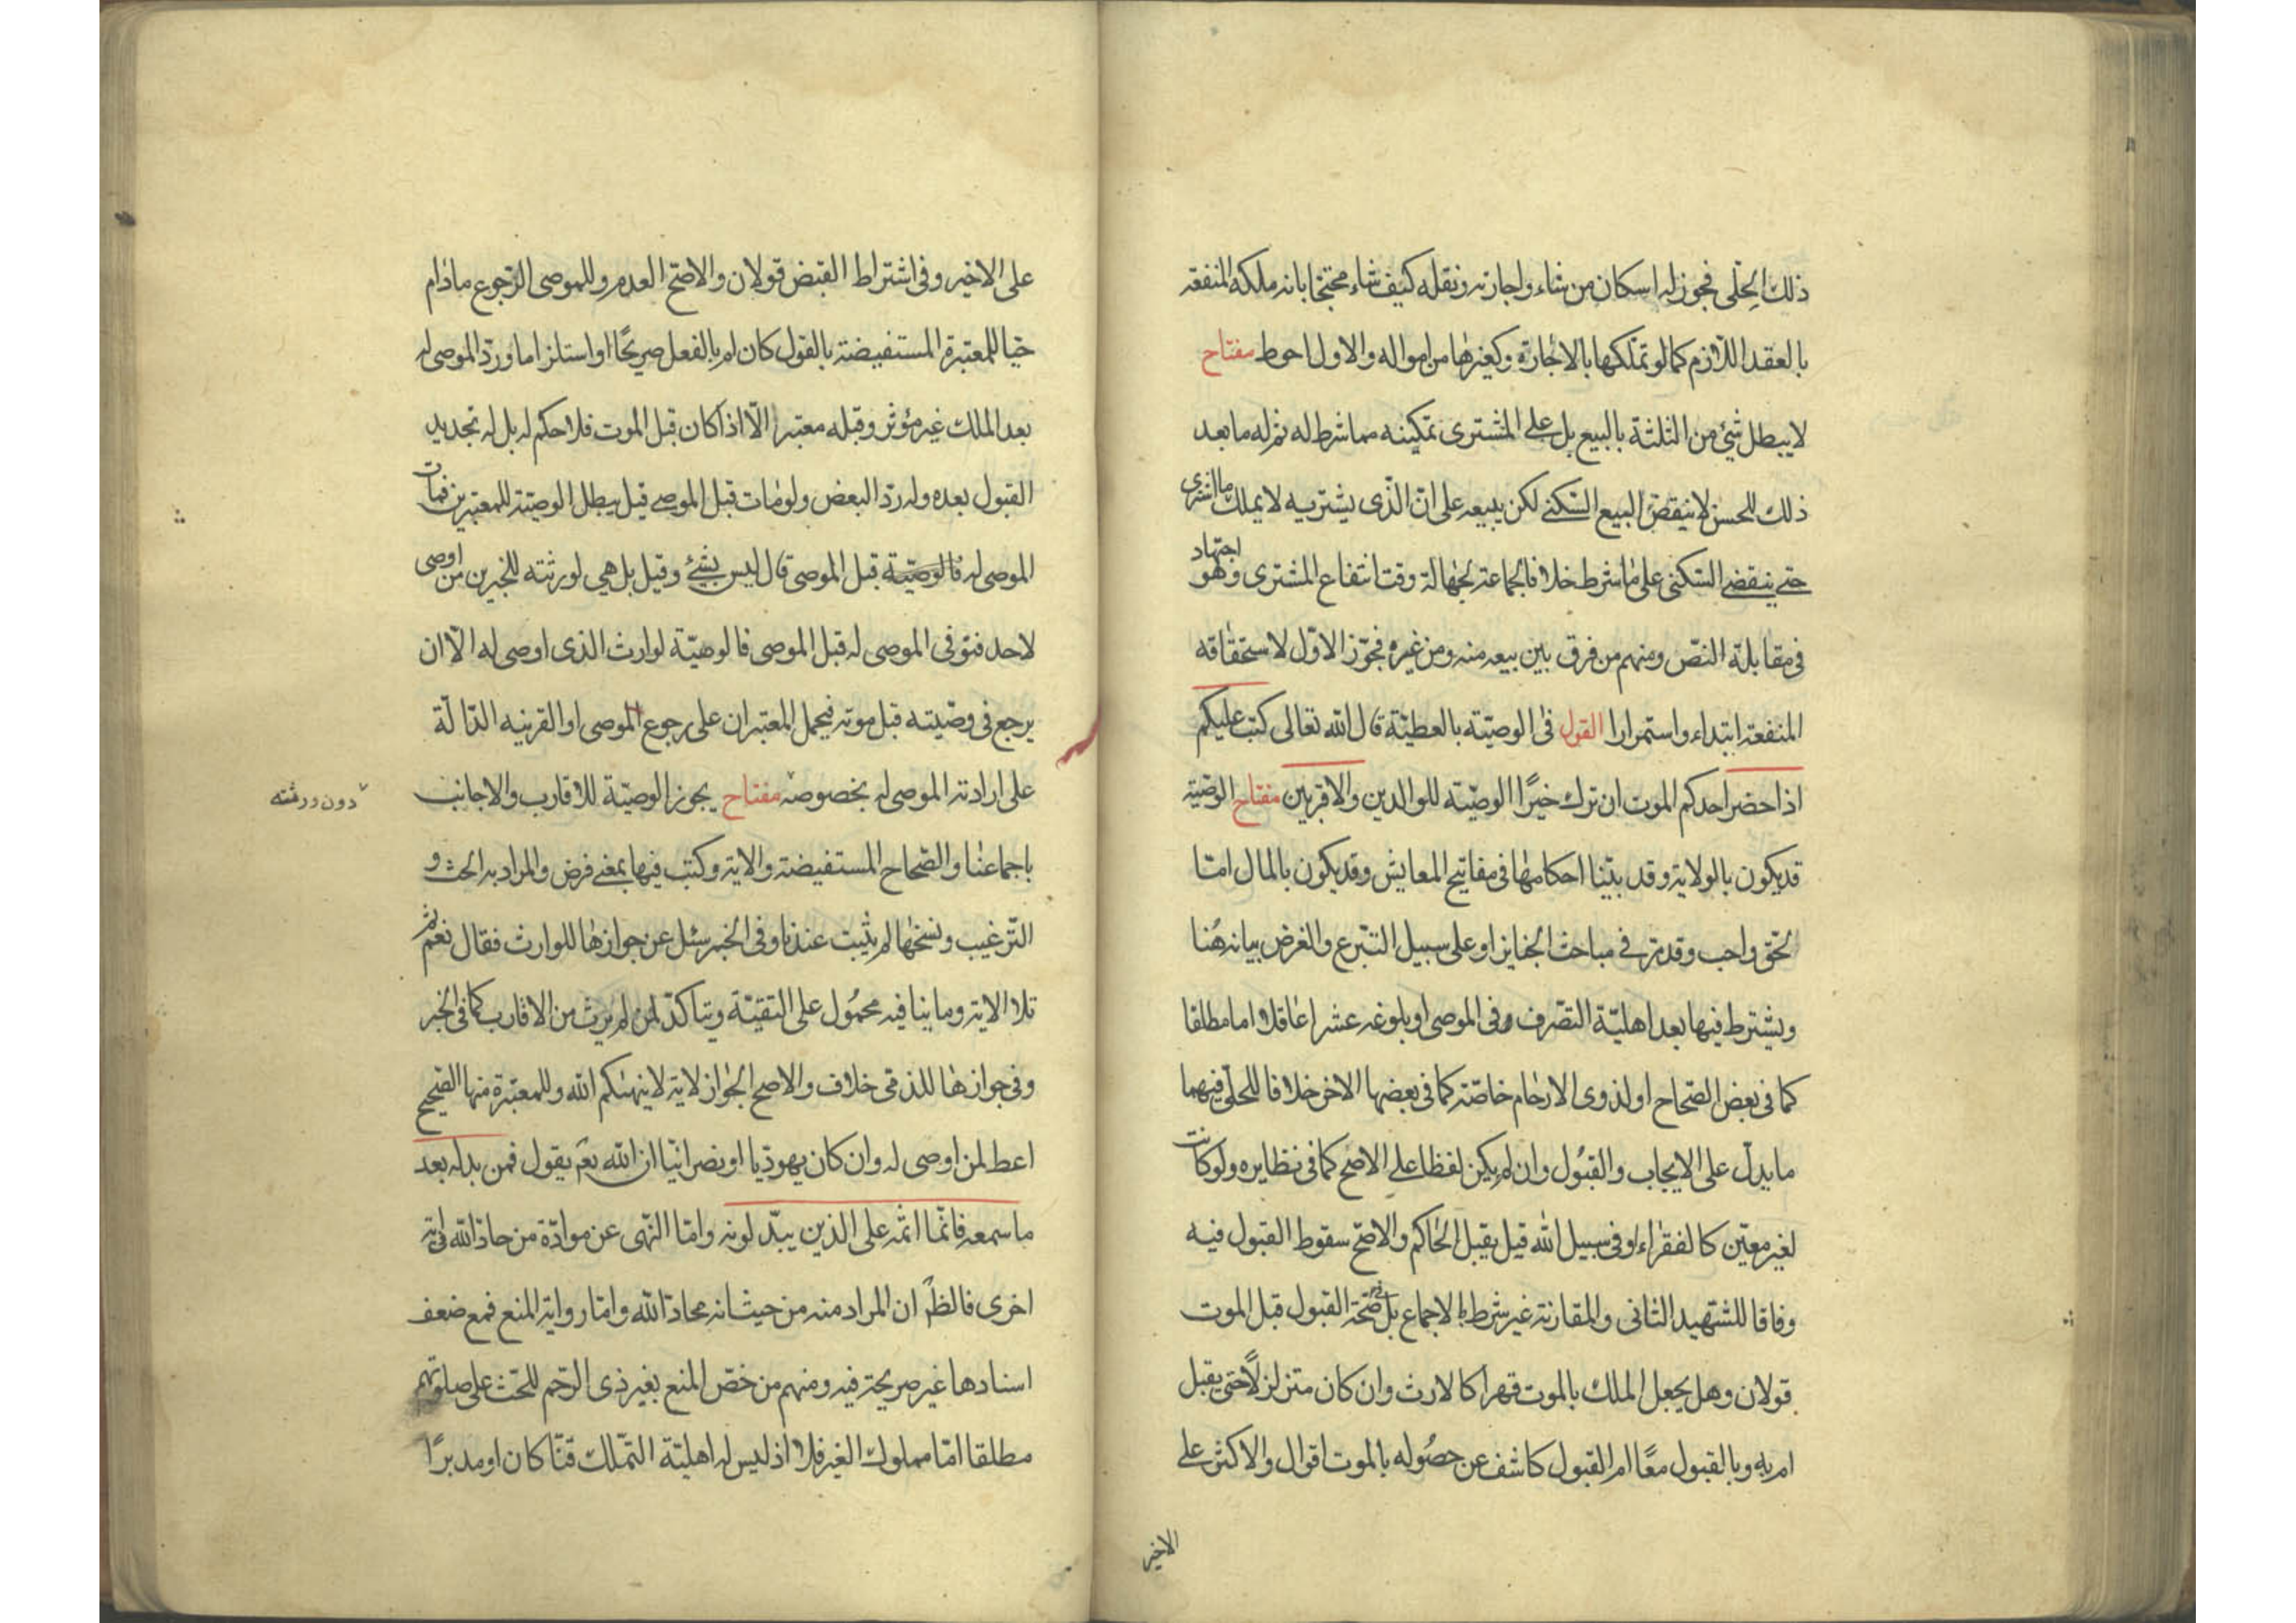 ذلك الحلّى فجوز له اسكان من شاء واجارته ونقله كيف شاء محتجّا بانه ملكه المنفعة
بالعقد اللّازم كما لو تملّكها بالاجارة وكغيرها من امواله والاول احوط مفتاح
لا يبطل شئ من الثلثة بالبيع بل على المشترى تمكينه مما شرط له ثم له ما بعد
ذلك للحسن لا ينقض البيع السّكنى لكن يبيعه على انّ الّذى يشتريه لا يملك ما اشترى
حتى ينقضى السّكنى على ما شرط خلافا لجماعة لجهالة وقت انتفاع المشترى وهو اجتهاد
فى مقابلة النصّ ومنهم من فرق بين بيعه منه ومن غيره فجوّز الاوّل لاستحقاقه
المنفعة ابتداء واستمرارا القول فى الوصيّة بالعطيّة قال الله تعالى كتب عليكم
اذا حضر احدكم الموت ان ترك خيرًا الوصيّة للوالدين والاقربين مفتاح الوصيّة
قد يكون بالولاية وقد بيّنا احكامها فى مفاتيح المعايش وقد يكون بالمال امّا
لحقّ واجب وقد مرّ فى مباحث الجنايز او على سبيل التبرع والغرض بيانه هُنا
ويشترط فيها بعد اهليّة التصّرف فى الموصى او بلوغه عشرا عاقلا اما مطلقا
كما فى بعض الصّحاح او لذوى الارحام خاصّة كما فى بعضها الاخر خلافا للحلّى فيهما
ما يدلّ على الايجاب والقبُول وان لم يكن لفظا على الاصح كما فى نظايره ولو كانت
لغير معيّن كالفقراء او فى سبيل الله قيل يقبل الحاكم والاصّح سقوط القبول فيه
وفاقا للشّهيد الثانى والمقارنة غير شرط بالاجماع بل فى صّحة القبول قبل الموت
قولان وهل يجعل الملك بالموت قهرا كالارث وان كان متزلزلًا حتى يقبل
ام به وبالقبول معًا ام القبول كاشف عن حصُوله بالموت اقوال والاكثر على
الاخير
على الاخير وفى اشتراط القبض قولان والاصّح العدم وللموصى الرّجوع مادام
حيّا للمعتبرة المستفيضة بالقول كان ام بالفعل صريحًا او استلزاما وردّ الموصى له
بعد الملك غير مؤثر وقبله معتبر الّا اذا كان قبل الموت فلا حكم له بل له تجديد
القبول بعده وله ردّ البعض ولو مات قبل الموصى قيل يبطل الوصيّة للمعتبرين فمات
الموصى له فالوصيّة قبل الموصى قال ليس بشئ وقيل بل هى لورثته للخبرين من اوصى
لاحد فتوفى الموصى له قبل الموصى فالوصيّة لوارث الذى اوصى له الّا ان
يرجع فى وصّيته قبل موته فيحمل المعتبران على رجوع الموصى او القرينه الدّالّة
على ارادته الموصى له بخصوصه مفتاح يجوز الوصيّة للاقارب والاجانب
دون ورثته
باجماعنا والصّحاح المستفيضة والاية وكتب فيها بمعنى فرض والمراد به الحث و
التّرغيب ونسخها لم يثبت عندنا وفى الخبر سئل عن جوازها للوارث فقال نعم ثم
تلا الاية وما ينافيه محمُول على التقيّة ويتاكدّ لمن لم يرث من الاقارب كما فى الخبر
وفى جوازها للذمّى خلاف والاصح الجواز لاية لا ينهىكم الله وللمعتبرة منها الصّحيح
اعط لمن اوصى له وان كان يهودّيا او نصرانيّا ان الله تع يقول فمن بدله بعد
ما سمعه فانّما اثمه على الذين يبدّلونه وامّا النّهى عن موادّة من حادّ الله فى اية
اخرى فالظّ ان المراد منه من حيث انه محادّ الله وامّا رواية المنع فمع ضعف
اسنادها غير صريحة فيه ومنهم من خصّ المنع بغير ذى الرّحم للحّث على صلوتهم
مطلقا امّا مملوك الغير فلا اذ ليس له اهليّة التمّلك قنّا كان او مدبرًا